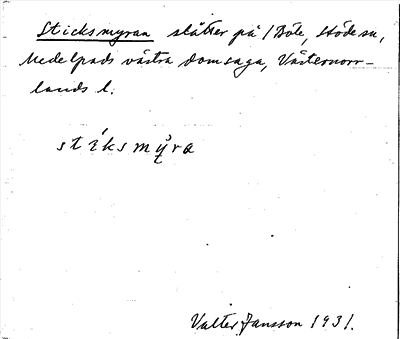 Sticksmyran slåtter på / Böle, Stöde sn,
Medelpads västra domsaga, Västernorr-
lands l.
stíksmỳ̨ra
Valter Jansson 1931.